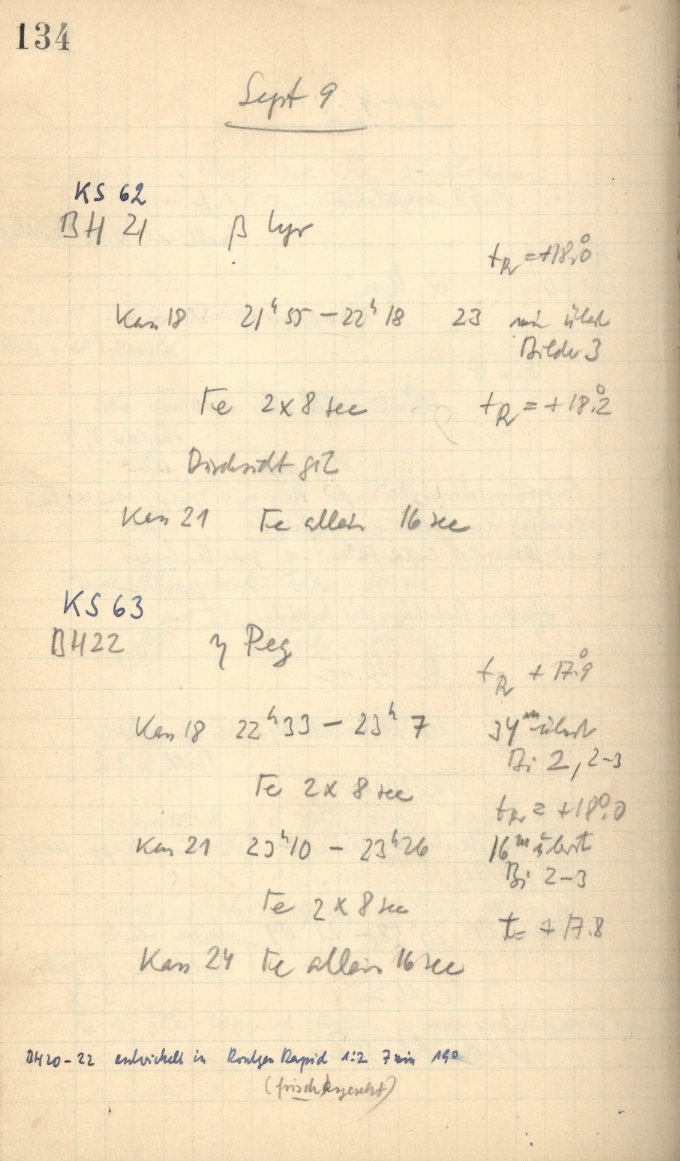 134
Sept 9
KS 62
BH 21 β Lyr
t_R = +18°.0
Kass 18 21ʰ55 – 22ʰ18 23 min überl
Bilder 3
Fe 2x8 sec t_R = +18°.2
Durchsicht gut
Kass 21 Fe allein 16 sec
KS 63
BH22 η Peg
t_R +17°.9
Kass 18 22ʰ33 – 23ʰ7 34ᵐ überl
Bi 2, 2–3
Fe 2x8 sec
t_R = +18°.0
Kass 21 23ʰ10 – 23ʰ26 16ᵐ überl
Bi 2–3
Fe 2x8 sec
t = +17.8
Kass 24 Fe allein 16 sec
BH20–22 entwickelt in Röntgen Rapid 1:2 7 min 19°
(frisch angesetzt)